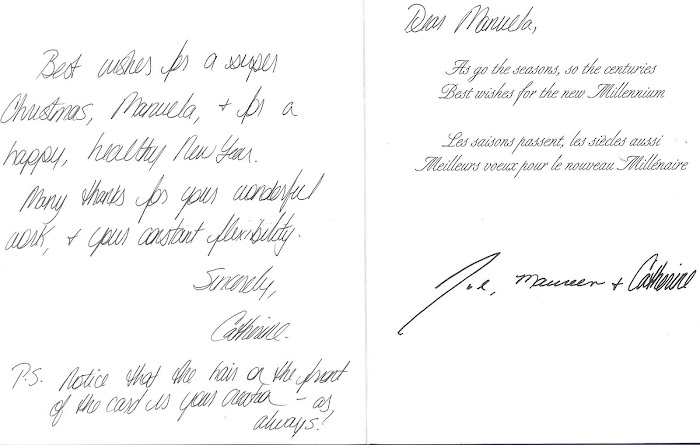 Best wishes for a super
Christmas, Manuela, + for a
happy, healthy New Year.
Many thanks for your wonderful
work, + your constant flexibility.
Sincerely,
Catherine.
P.S. Notice that the hair on the front
of the card is your creation - as
always!
Dear Manuela,
As go the seasons, so the centuries
Best wishes for the new Millennium
Les saisons passent, les siècles aussi
Meilleurs voeux pour le nouveau Millénaire
Joe, Maureen + Catherine